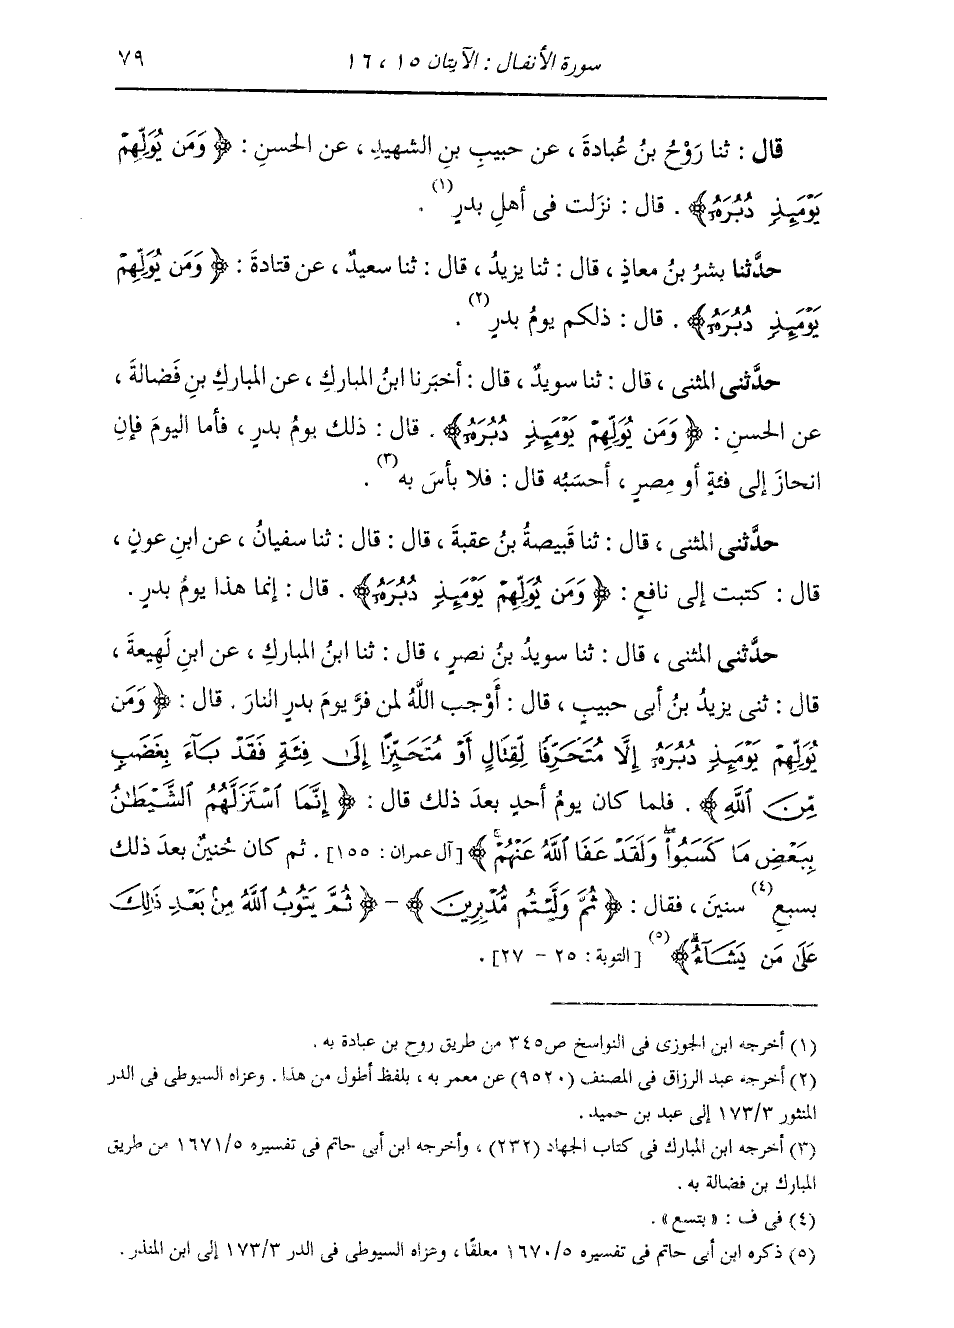 سورة الأنفال : الآيتان ١٥ ، ١٦
٧٩
قال : ثنا رَوْحُ بنُ عُبادةَ ، عن حبيبِ بنِ الشهيدِ ، عن الحسنِ : ﴿ وَمَن يُوَلِّهِمْ
يَوْمَئِذٍ دُبُرَهُۥٓ ﴾ . قال : نزَلت فى أهلِ بدرٍ(١) .
حدَّثنا بشرُ بنُ معاذٍ ، قال : ثنا يزيدُ ، قال : ثنا سعيدٌ ، عن قتادةَ : ﴿ وَمَن يُوَلِّهِمْ
يَوْمَئِذٍ دُبُرَهُۥٓ ﴾ . قال : ذلكم يومُ بدرٍ(٢) .
حدَّثنى المثنى ، قال : ثنا سويدٌ ، قال : أخبَرنا ابنُ المباركِ ، عن المباركِ بنِ فَضالةَ ،
عن الحسنِ : ﴿ وَمَن يُوَلِّهِمْ يَوْمَئِذٍ دُبُرَهُۥٓ ﴾ . قال : ذلك يومُ بدرٍ ، فأما اليومَ فإنِ
انحازَ إلى فئةٍ أو مِصرٍ ، أحسَبُه قال : فلا بأسَ به(٣) .
حدَّثنى المثنى ، قال : ثنا قَبيصةُ بنُ عقبةَ ، قال : قال : ثنا سفيانُ ، عن ابنِ عونٍ ،
قال : كتبت إلى نافعٍ : ﴿ وَمَن يُوَلِّهِمْ يَوْمَئِذٍ دُبُرَهُۥٓ ﴾ . قال : إنما هذا يومُ بدرٍ .
حدَّثنى المثنى ، قال : ثنا سويدُ بنُ نصرٍ ، قال : ثنا ابنُ المباركِ ، عن ابنِ لَهيعةَ ،
قال : ثنى يزيدُ بنُ أبى حبيبٍ ، قال : أَوْجب اللَّهُ لمن فرَّ يومَ بدرٍ النارَ . قال : ﴿ وَمَن
يُوَلِّهِمْ يَوْمَئِذٍ دُبُرَهُۥٓ إِلَّا مُتَحَرِّفًا لِّقِتَالٍ أَوْ مُتَحَيِّزًا إِلَىٰ فِئَةٍ فَقَدْ بَآءَ بِغَضَبٍ
مِّنَ ٱللَّهِ ﴾ . فلما كان يومُ أحدٍ بعدَ ذلك قال : ﴿ إِنَّمَا ٱسْتَزَلَّهُمُ ٱلشَّيْطَٰنُ
بِبَعْضِ مَا كَسَبُوا۟ ۖ وَلَقَدْ عَفَا ٱللَّهُ عَنْهُمْ ۚ ﴾ [آل عمران : ١٥٥] . ثم كان حُنينٌ بعدَ ذلك
بسبعِ(٤) سنينَ ، فقال : ﴿ ثُمَّ وَلَّيْتُم مُّدْبِرِينَ ﴾ - ﴿ ثُمَّ يَتُوبُ ٱللَّهُ مِنۢ بَعْدِ ذَٰلِكَ
عَلَىٰ مَن يَشَآءُ ۗ ﴾(٥) [التوبة : ٢٥ - ٢٧] .
(١) أخرجه ابن الجوزى فى النواسخ ص٣٤٥ من طريق روح بن عبادة به .
(٢) أخرجه عبد الرزاق فى المصنف (٩٥٢٠) عن معمر به ، بلفظ أطول من هذا . وعزاه السيوطى فى الدر
المنثور ١٧٣/٣ إلى عبد بن حميد .
(٣) أخرجه ابن المبارك فى كتاب الجهاد (٢٣٢) ، وأخرجه ابن أبى حاتم فى تفسيره ١٦٧١/٥ من طريق
المبارك بن فضالة به .
(٤) فى ف : « بتسع » .
(٥) ذكره ابن أبى حاتم فى تفسيره ١٦٧٠/٥ معلقًا ، وعزاه السيوطى فى الدر ١٧٣/٣ إلى ابن المنذر .